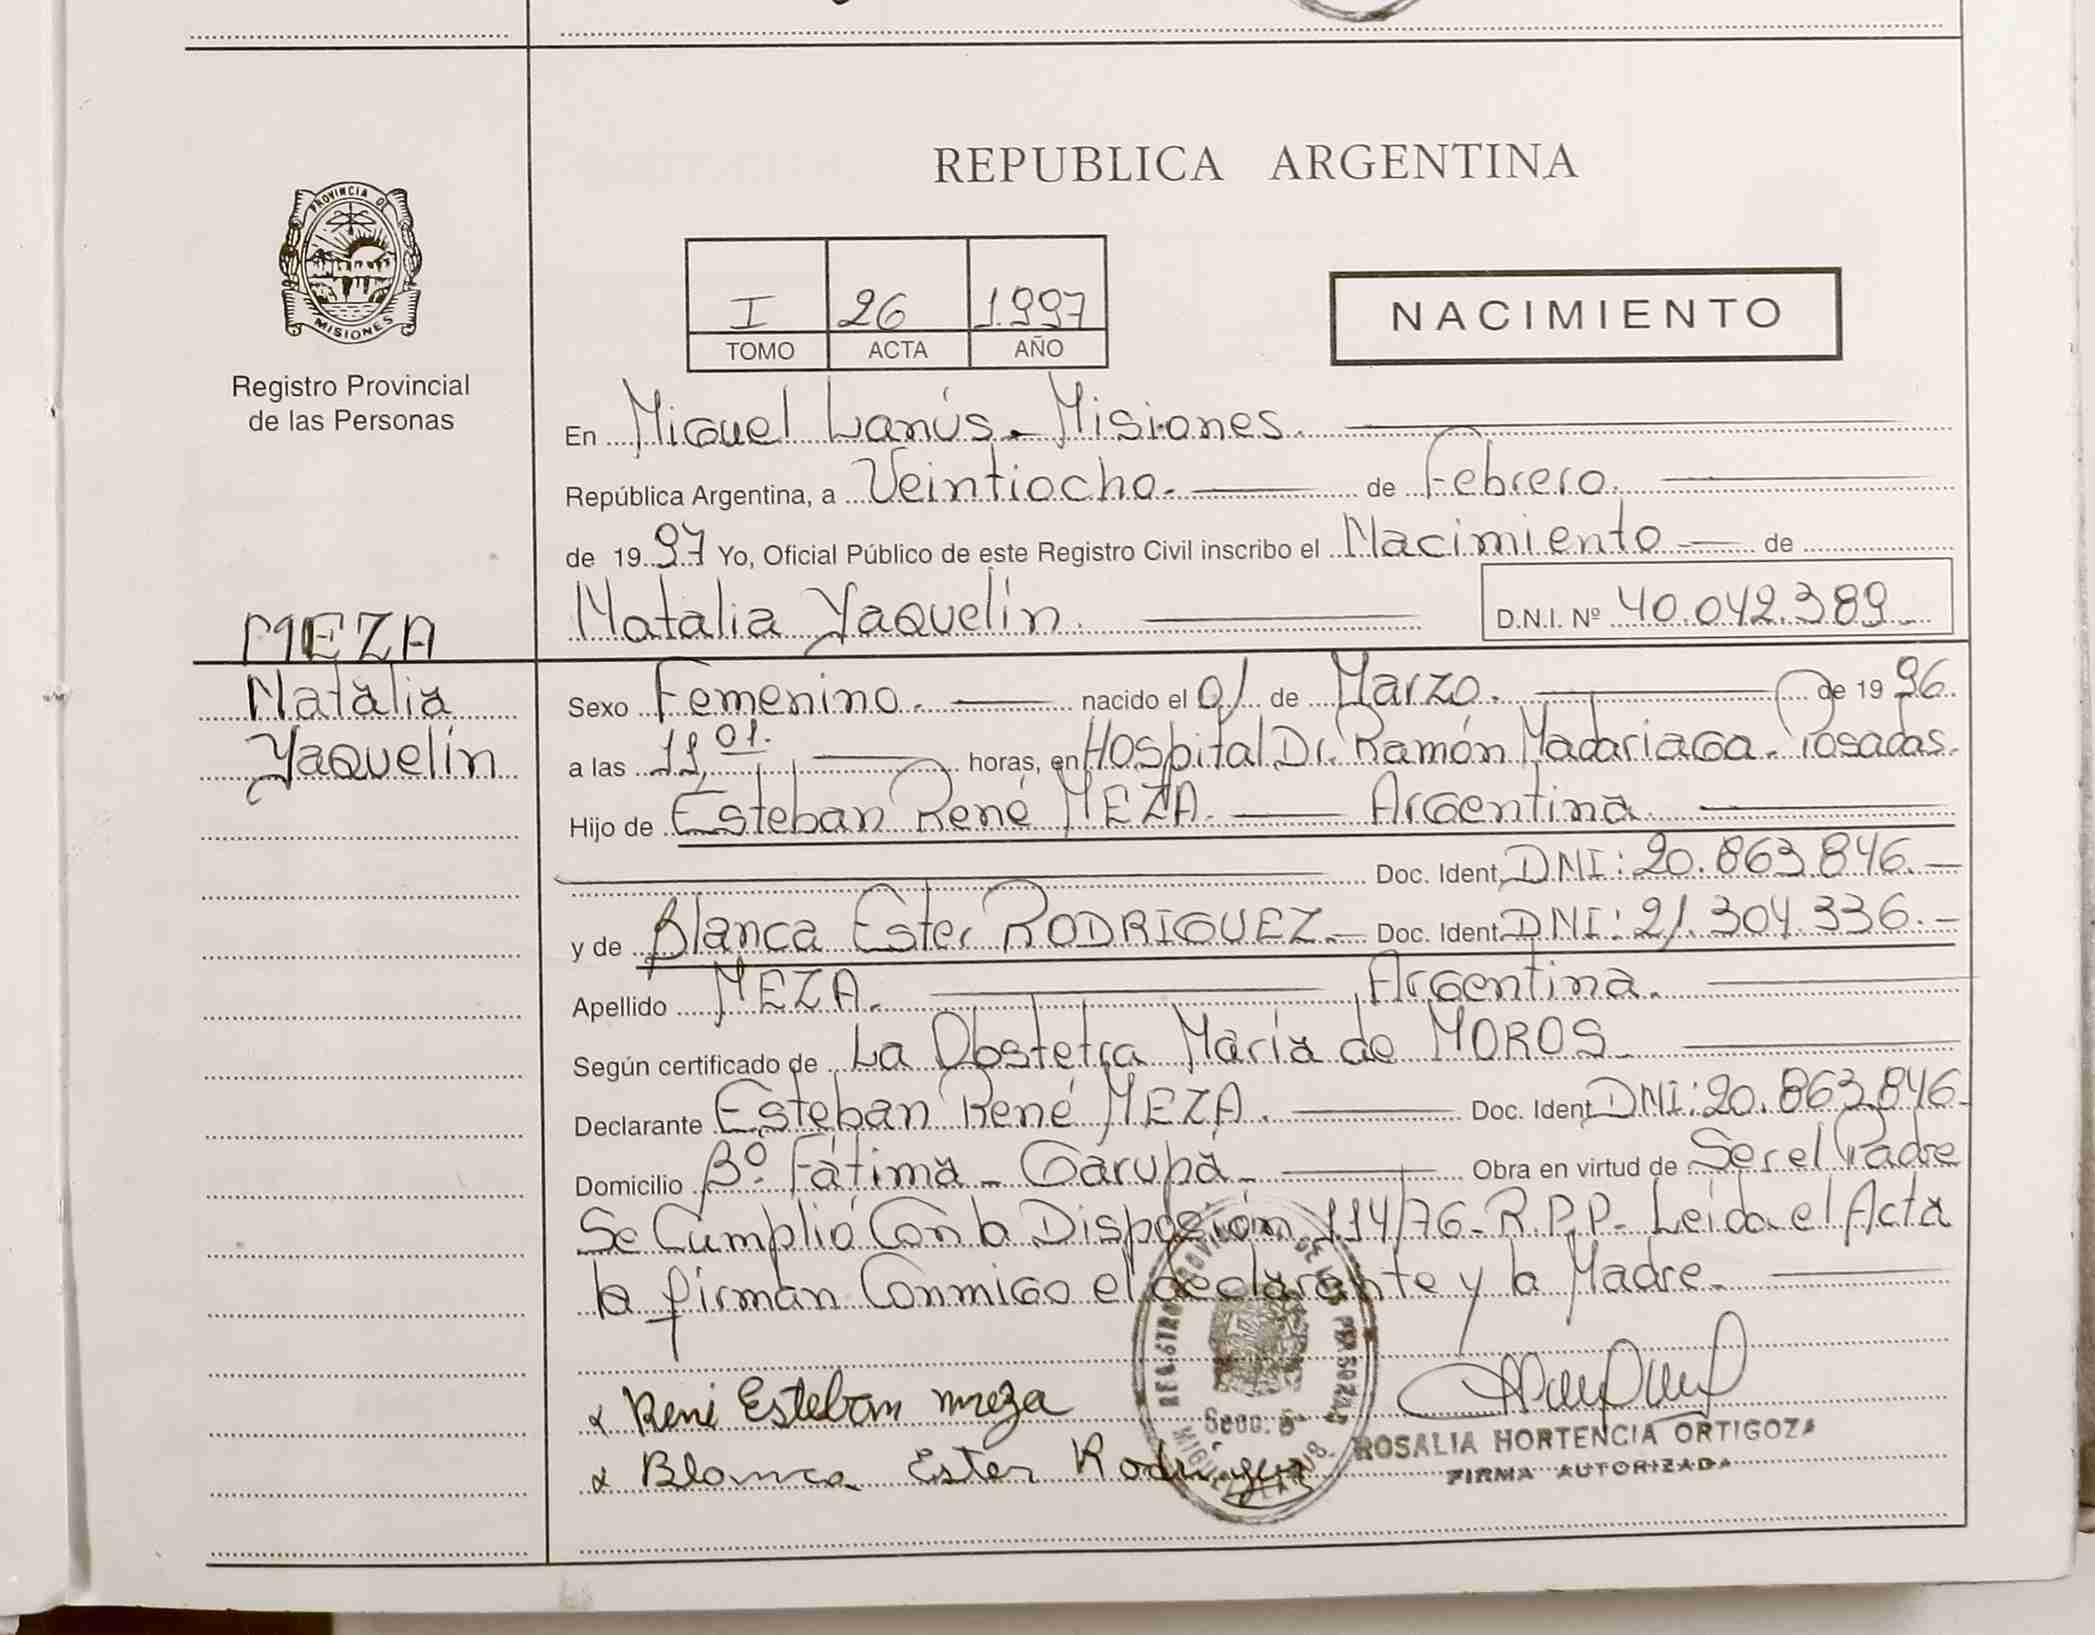 REPUBLICA ARGENTINA
PROVINCIA DE
MISIONES
Registro Provincial
de las Personas
I 26 1997
TOMO ACTA AÑO
NACIMIENTO
En Miguel Lanús - Misiones.
República Argentina, a Veintiocho. de Febrero.
de 1997 Yo, Oficial Público de este Registro Civil inscribo el Nacimiento de
Natalia Yaquelin. D.N.I. Nº 40.042.389
MEZA
Natalia
Yaquelin
Sexo Femenino. nacido el 01 de Marzo. de 1996.
a las 11,01. horas, en Hospital Dr. Ramón Madariaga - Posadas.
Hijo de Esteban René MEZA. Argentina.
Doc. Ident. DNI: 20.863.846.-
y de Blanca Ester RODRIGUEZ.- Doc. Ident. DNI: 21.304.336.-
Apellido MEZA. Argentina.
Según certificado de La Obstetra María de MOROS.
Declarante Esteban René MEZA. Doc. Ident. DNI: 20.863.846.
Domicilio Bº. Fátima - Garupá. Obra en virtud de Ser el Padre
Se Cumplió Con la Disposión 114/76 - R.P.P. - Leída el Acta
la firman Conmigo el declarante y la Madre.
René Esteban meza
Blanca Ester Rodriguez
REGISTRO PROVINCIAL DE LAS PERSONAS
Secc. 5ª
MIGUEL LANUS
ROSALIA HORTENCIA ORTIGOZA
FIRMA AUTORIZADA